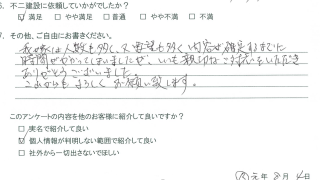 6. 不二建設に依頼していかがでしたか？
☑ 満足 □ やや満足 □ 普通 □ やや不満 □ 不満
7. その他、ご自由にお書きください。
我が家は人数も多く、又要望も多く内容が確定するまでに
時間がかかってしまいましたが、いつも親切なご対応をいただき
ありがとうございました。
これからもよろしくお願い致します。
このアンケートの内容を他のお客様に紹介して良いですか？
□ 実名で紹介して良い
☑ 個人情報が判明しない範囲で紹介して良い
□ 社外から一切出さないでほしい
元年 8月 4日